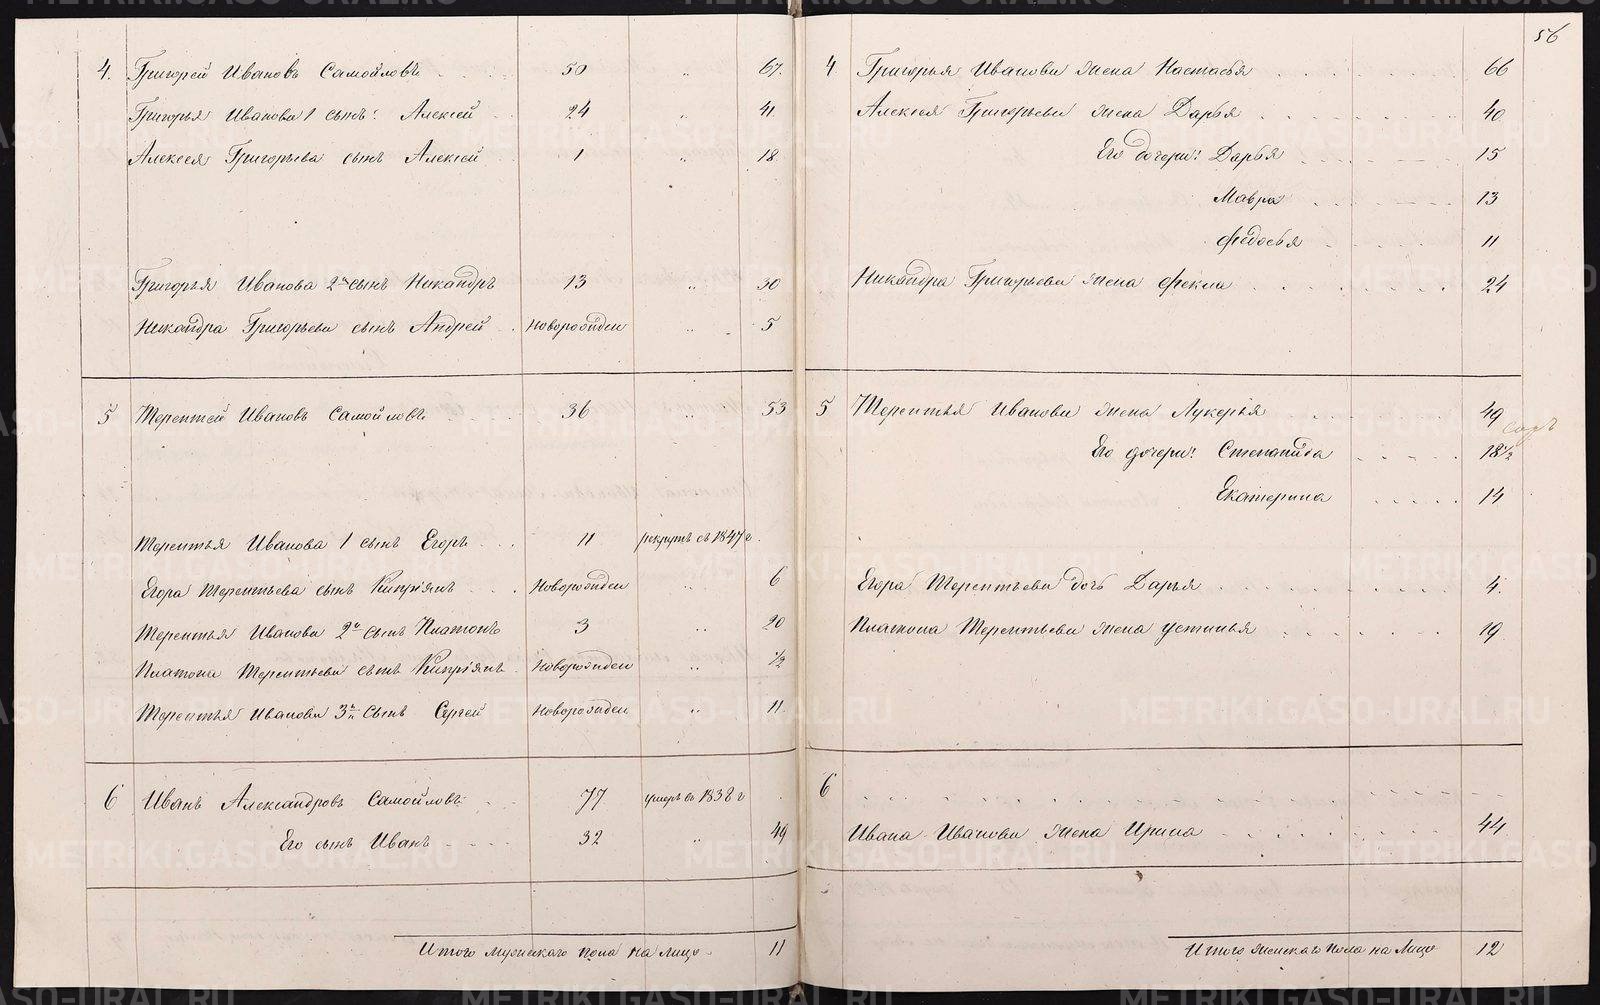 56
4. Григорей Ивановъ Самойловъ 50 " 67.
Григорья Иванова 1 сынъ: Алексей 24 " 41
Алексея Григорьева сынъ Алексей 1 " 18
Григорья Иванова 2й сынъ Никандръ 13 " 30
Никандра Григорьева сынъ Андрей новорожден " 5
5 Терентей Ивановъ Самойловъ 36 " 53
Терентья Иванова 1 сынъ Егоръ 11 рекрутъ съ 1847 г.
Егора Терентьева сынъ Кипріянъ Новорожден " 6
Терентья Иванова 2й сынъ Платонъ 3 " 20
Платона Терентьева сынъ Кипріянъ Новорожден " 1/2
Терентья Иванова 3й сынъ Сергей Новорожден " 11
6 Иванъ Александровъ Самойловъ 77 умеръ въ 1838 г
Его сынъ Иванъ 32 " 49
Итого мужескаго пола на лицо 11
4 Григорья Иванова жена Настасья 66
Алексея Григорьева жена Дарья 40
Его дочери: Дарья 15
Мавра 13
Федосья 11
Никандра Григорьева жена Фекла 24
5 Терентья Иванова жена Лукерья 49
Его дочери: Степанида 18 1/2
Екатерина 14
Егора Терентьева дочь Дарья 4.
Платона Терентьева жена Устинья 19
6
Ивана Иванова жена Ирина 44
Итого женскаго пола на Лицо 12
METRIKI.GASO-URAL.RU